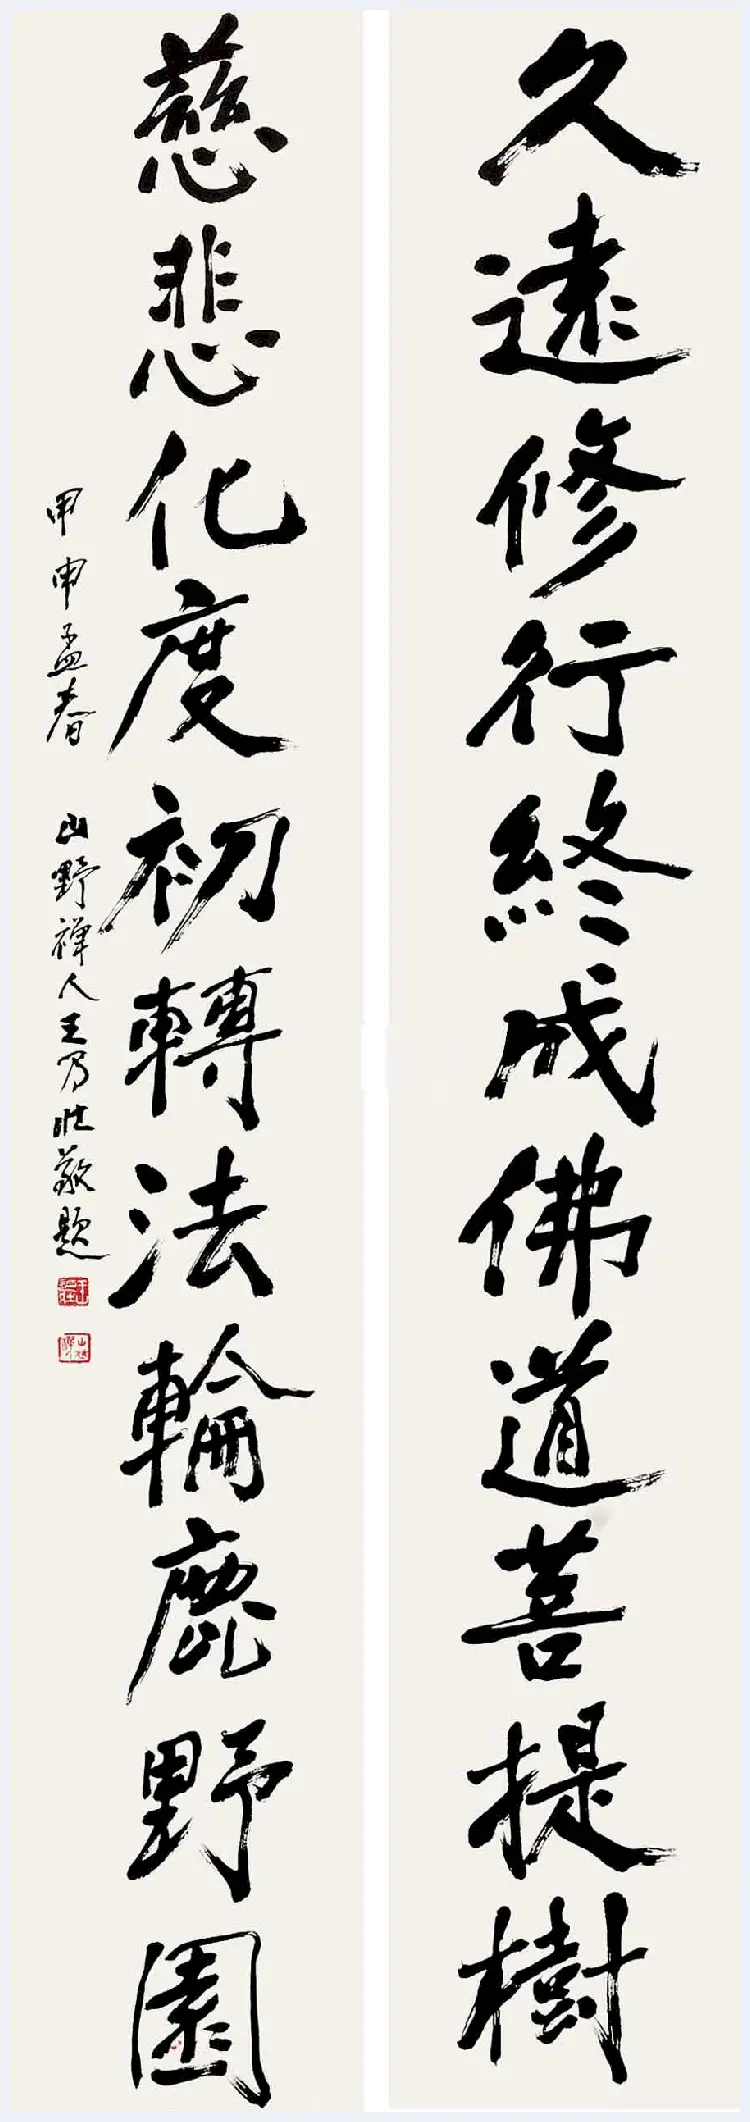 久遠修行終成佛道菩提樹
慈悲化度初轉法輪鹿野園
甲申孟春 山野禅人王乃壯敬題